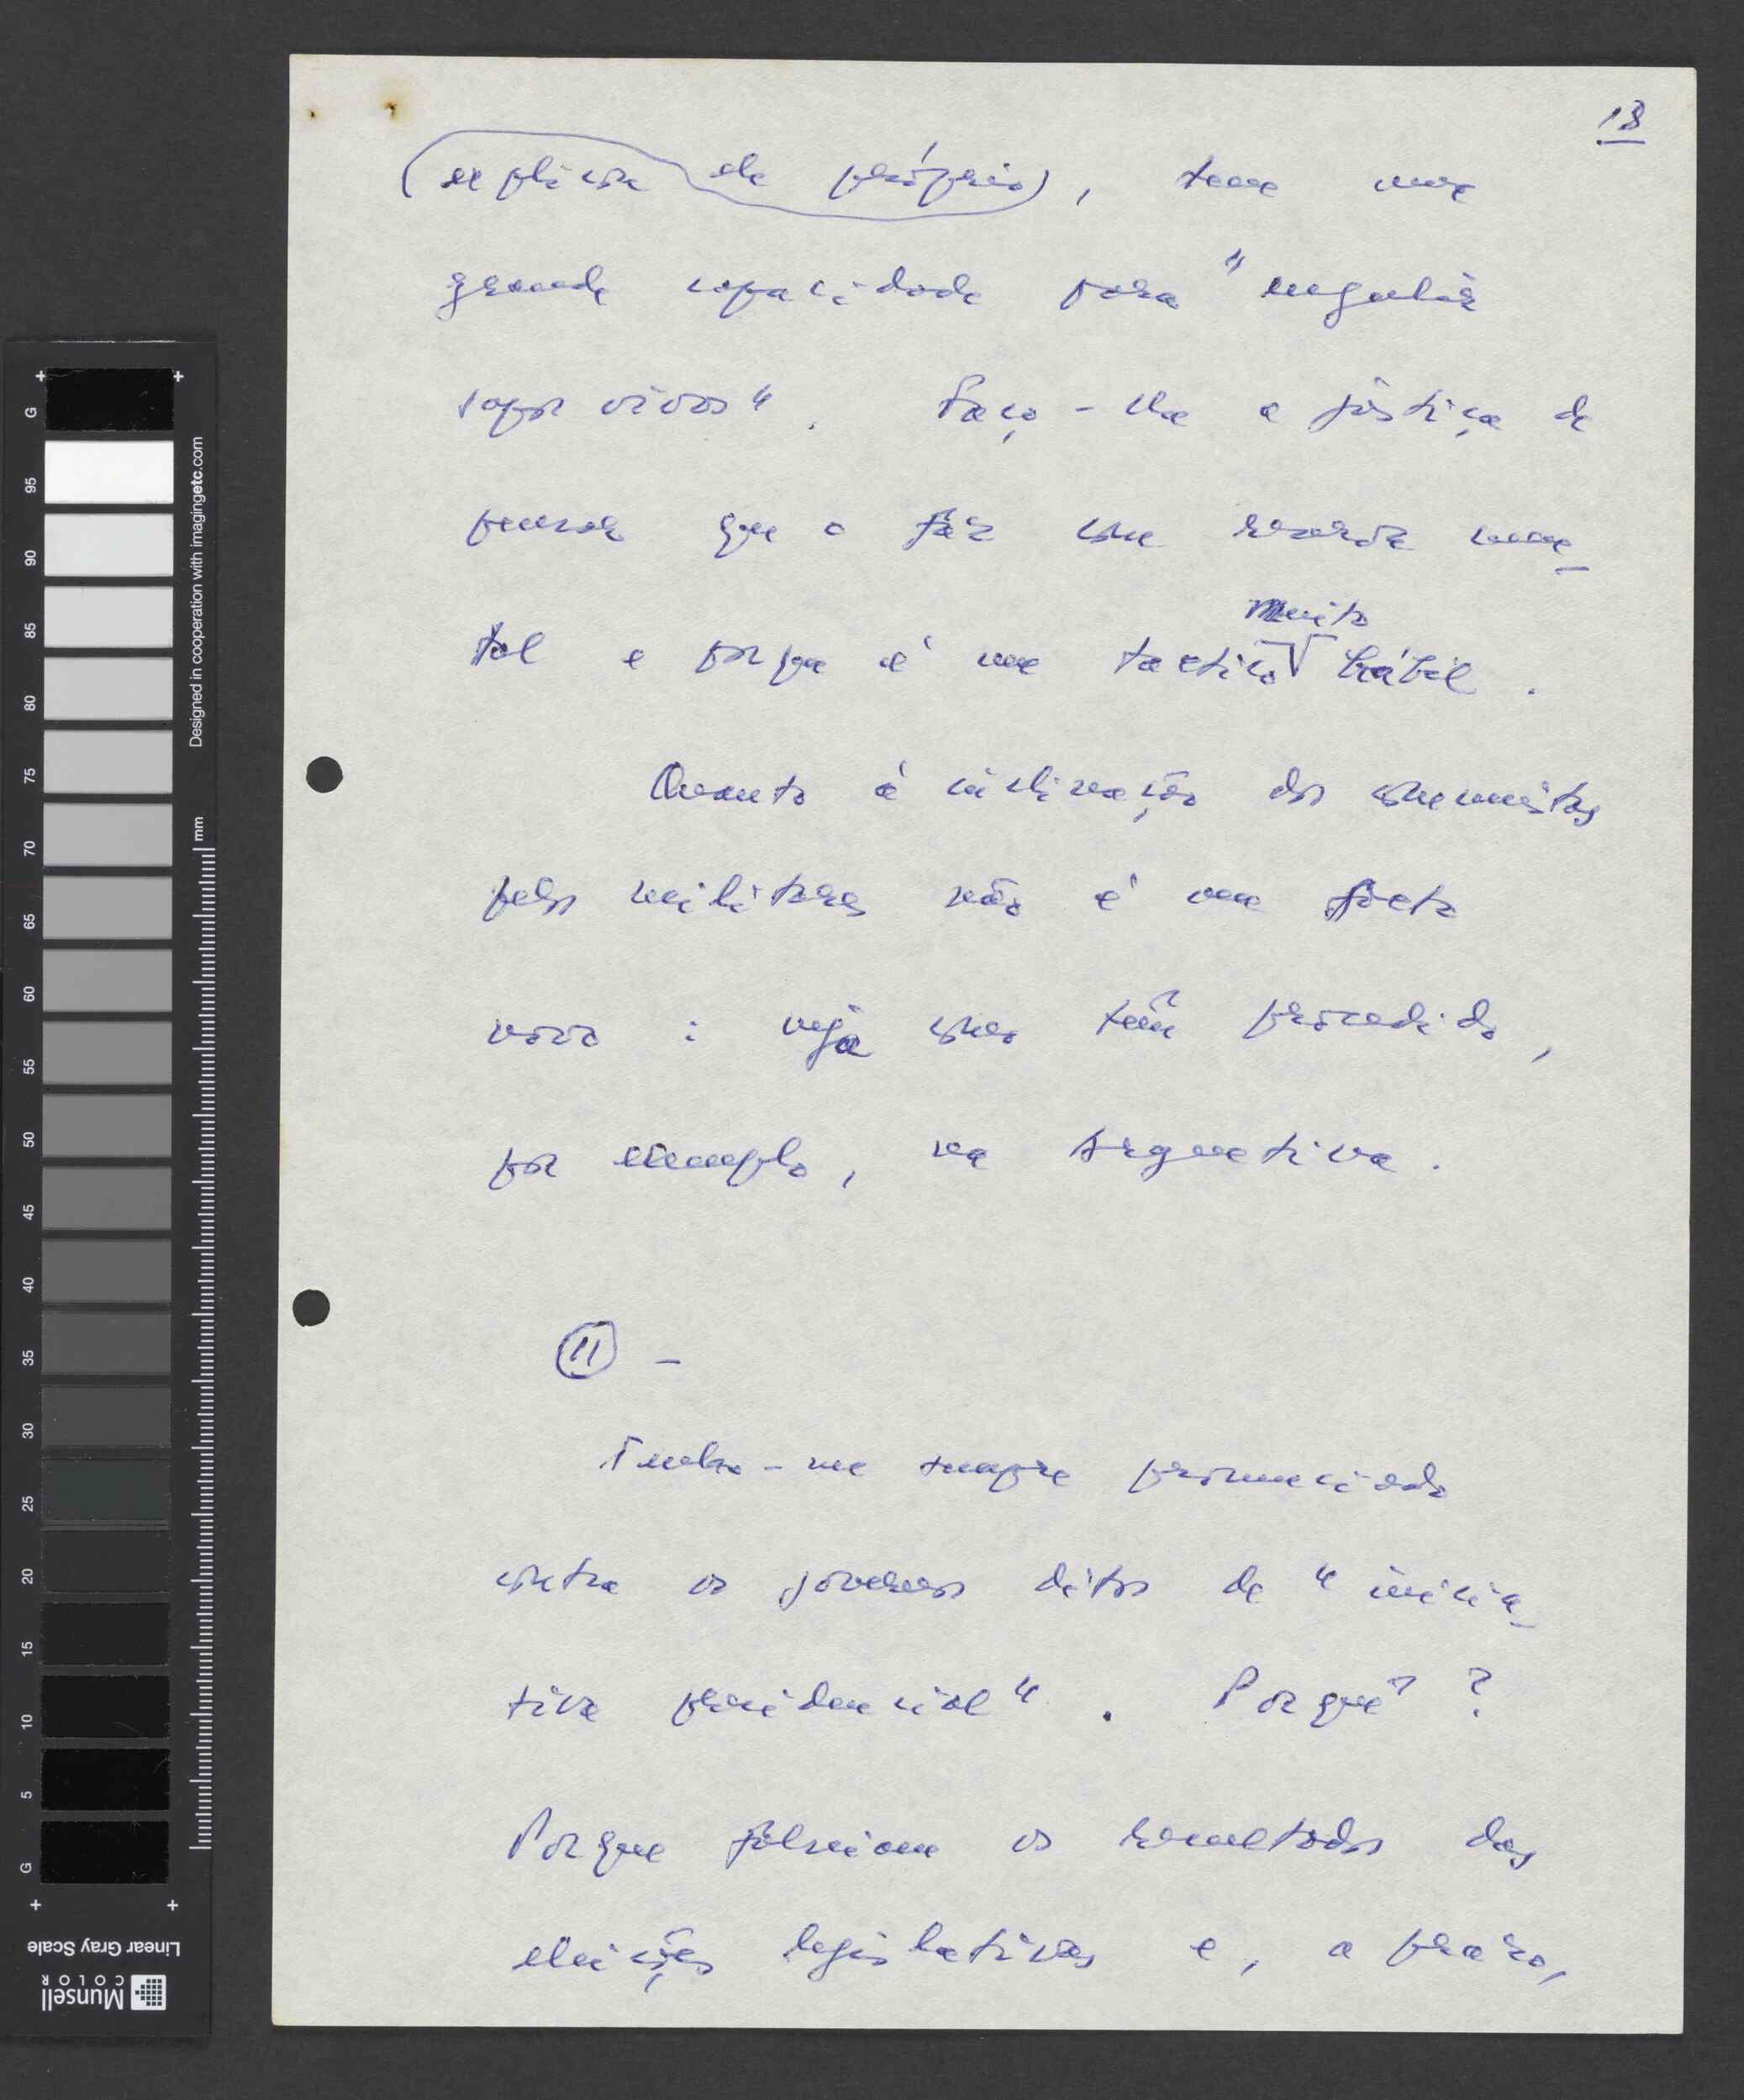 18
(explicou ele próprio), tem uma
grande capacidade para "engulir
sapos vivos". Faço-lhe a justiça de
pensar que o faz com reserva men-
tal e porque é um tactico muito hábil.
Quanto à inclinação dos comunistas
pelos militares não é um facto
novo: veja como têm procedido,
por exemplo, na Argentina.
11 -
Tenho-me sempre pronunciado
contra os governos ditos de "inicia-
tiva presidencial". Porquê?
Porque falseiam os resultados das
eleições legislativas e, a prazo,
G
95
90
85
80
75
70
65
60
55
50
45
40
35
30
25
20
15
10
5
G
Designed in cooperation with imagingetc.com
mm
Linear Gray Scale
Munsell
COLOR